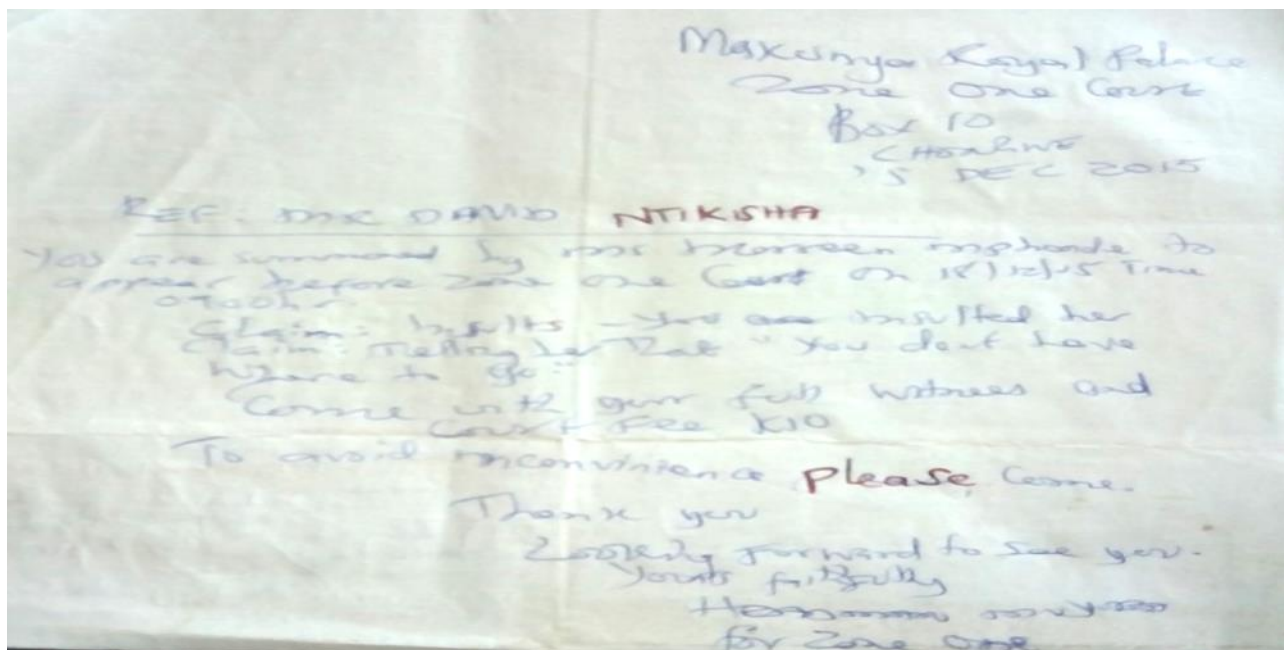 Royal Palace
Zone One Court
Box 10
DEC 2015
REF. MR DAVID NTIKISHA
You are summoned by to
appear before Zone one Court on 18/12/15 Time
Claim: Insults - You insulted her
Claim: Telling her that "You don't have
where to go"
Come with your full witness and
court Fee K10
To avoid inconvinience please come.
Thank you
Looking forward to see you.
Yours faithfully
for Zone one